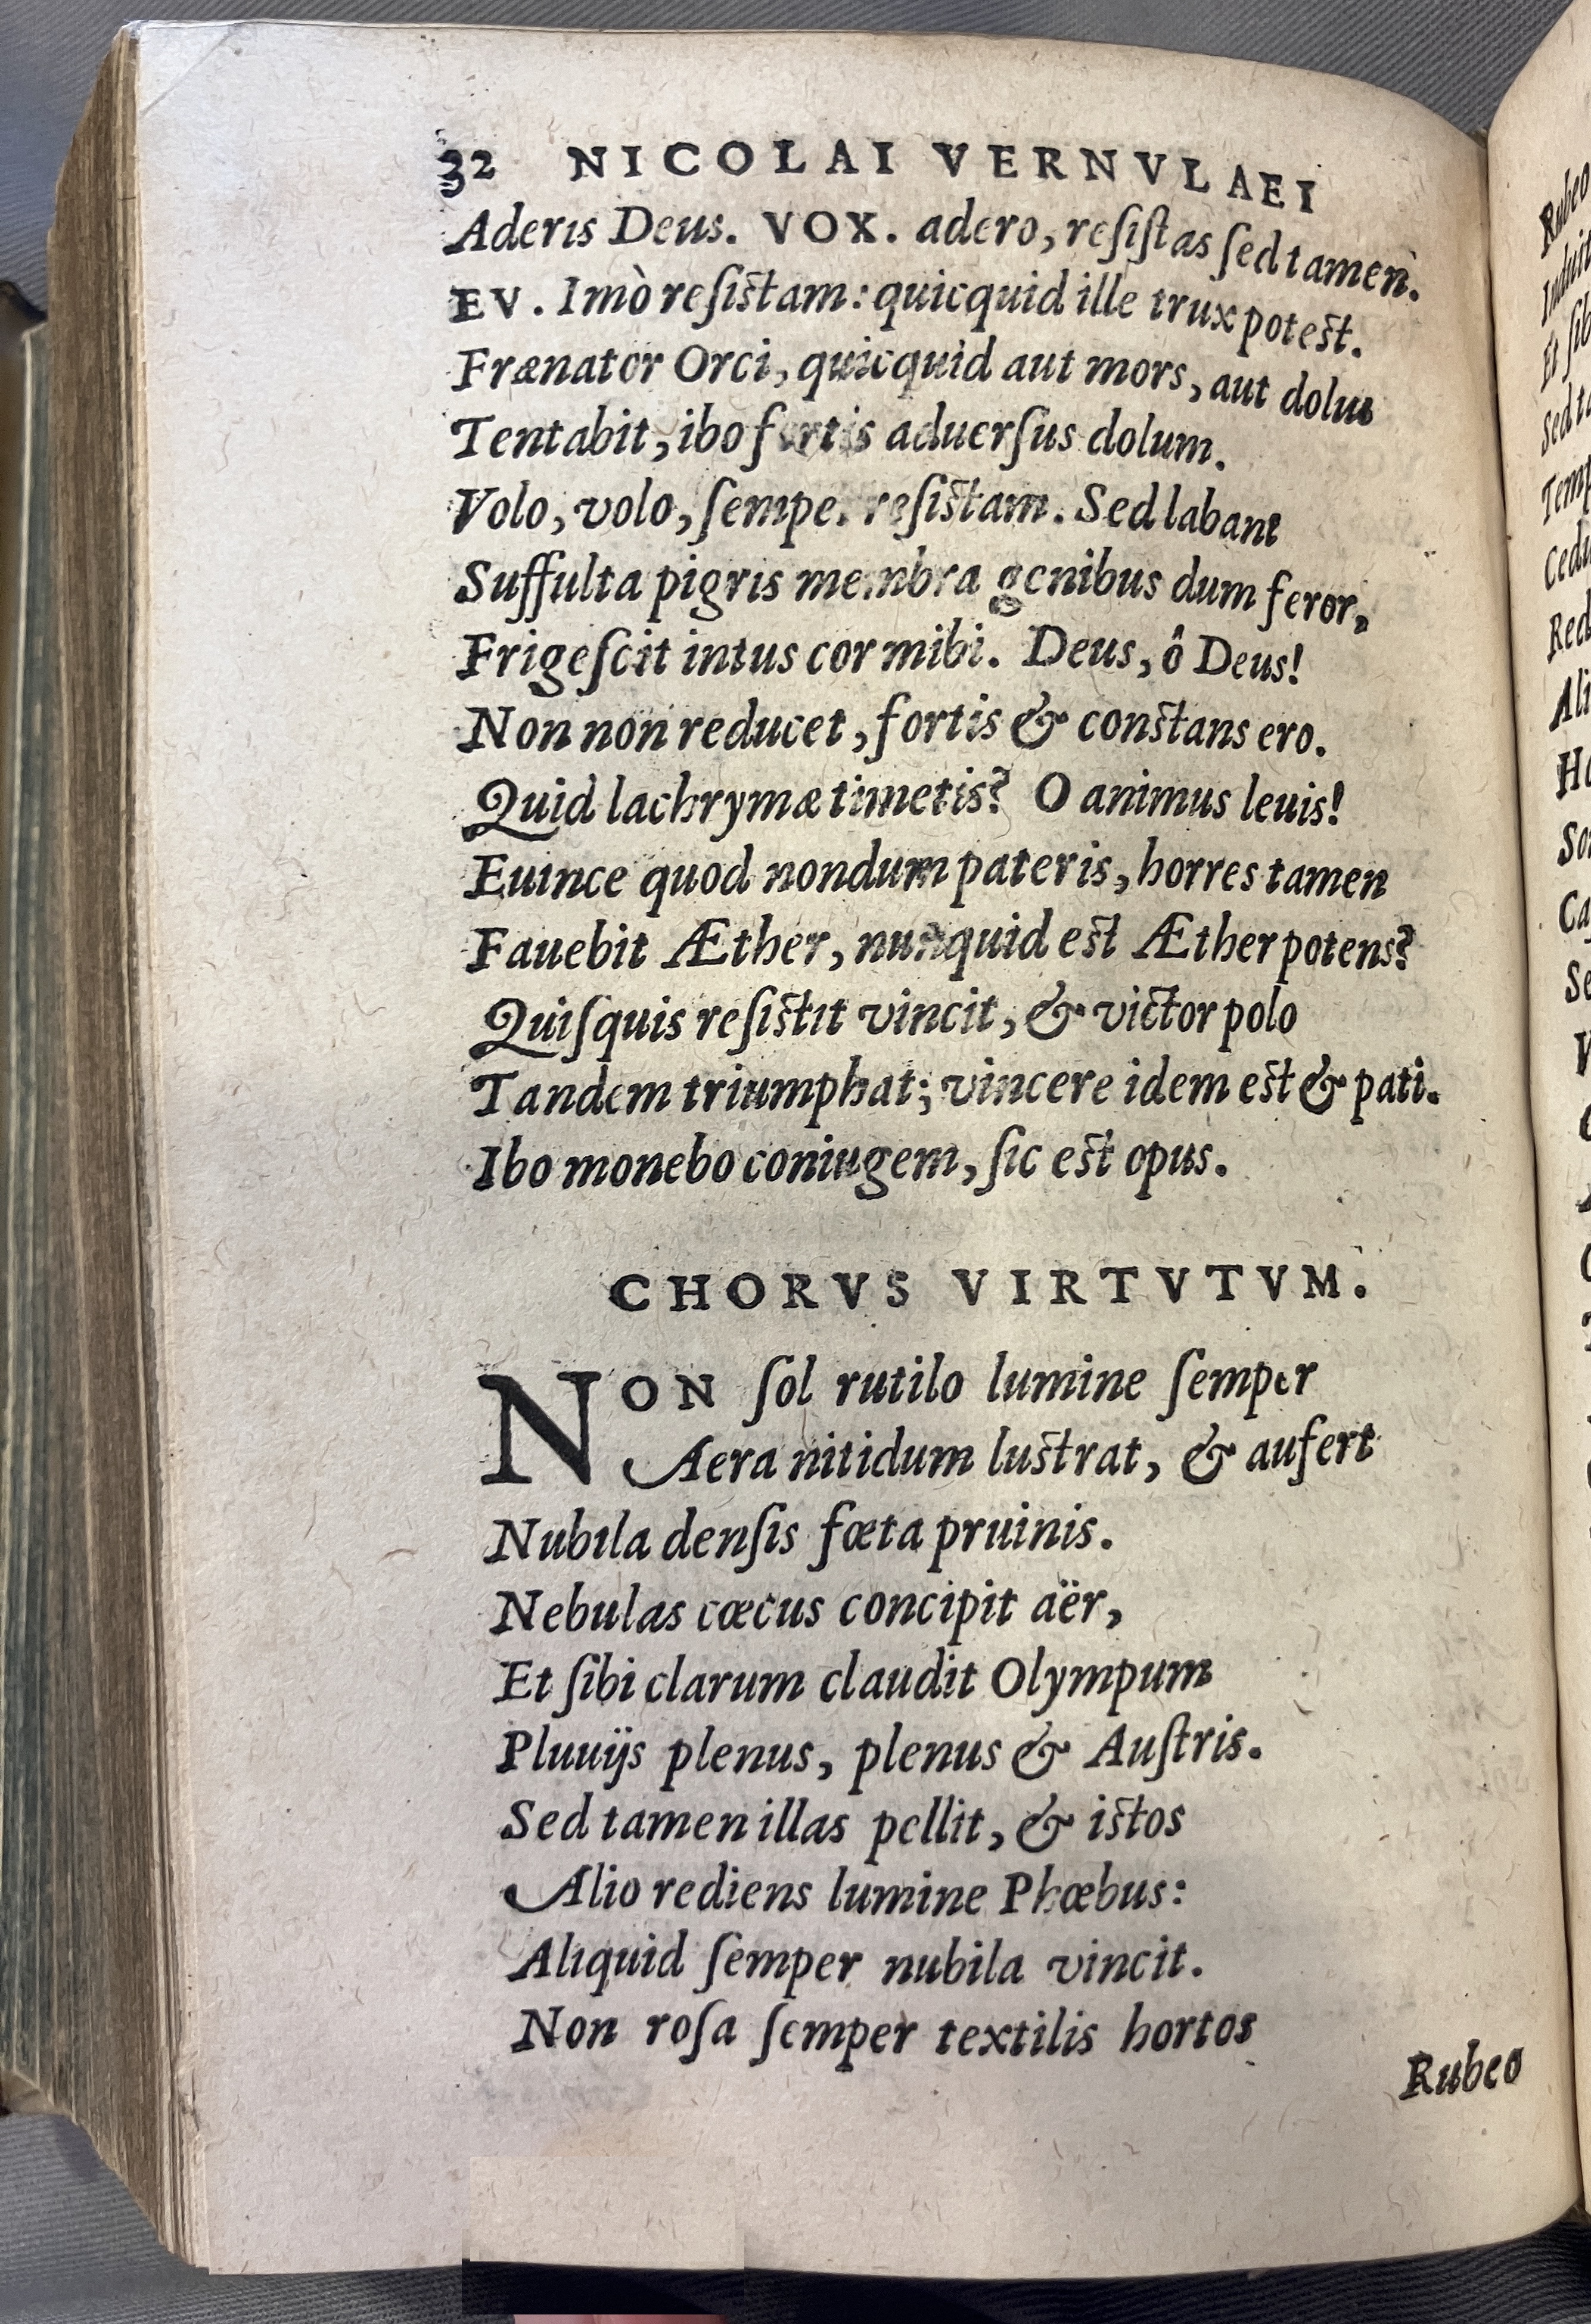 32 NICOLAI VERNVLAEI
Aderis Deus. VOX. adero, reſiſtas ſed tamen.
EV. Imò reſiſtam: quicquid ille trux poteſt.
Frænator Orci, quicquid aut mors, aut dolus
Tentabit, ibo fortis aduerſus dolum.
Volo, volo, ſemper reſiſtam. Sed labant
Suffulta pigris membra genibus dum feror,
Frigeſcit intus cor mihi. Deus, ô Deus!
Non non reducet, fortis & conſtans ero.
Quid lachrymæ timetis? O animus leuis!
Euince quod nondum pateris, horres tamen
Fauebit Æther, nunquid eſt Æther potens?
Quiſquis reſiſtit vincit, & victor polo
Tandem triumphat; vincere idem eſt & pati.
Ibo monebo coniugem, ſic eſt opus.
CHORVS VIRTVTVM.
NON ſol rutilo lumine ſemper
Aera nitidum luſtrat, & aufert
Nubila denſis fœta pruinis.
Nebulas cœcus concipit aër,
Et ſibi clarum claudit Olympum
Pluuijs plenus, plenus & Auſtris.
Sed tamen illas pellit, & iſtos
Alio rediens lumine Phœbus:
Aliquid ſemper nubila vincit.
Non roſa ſemper textilis hortos
Rubeo